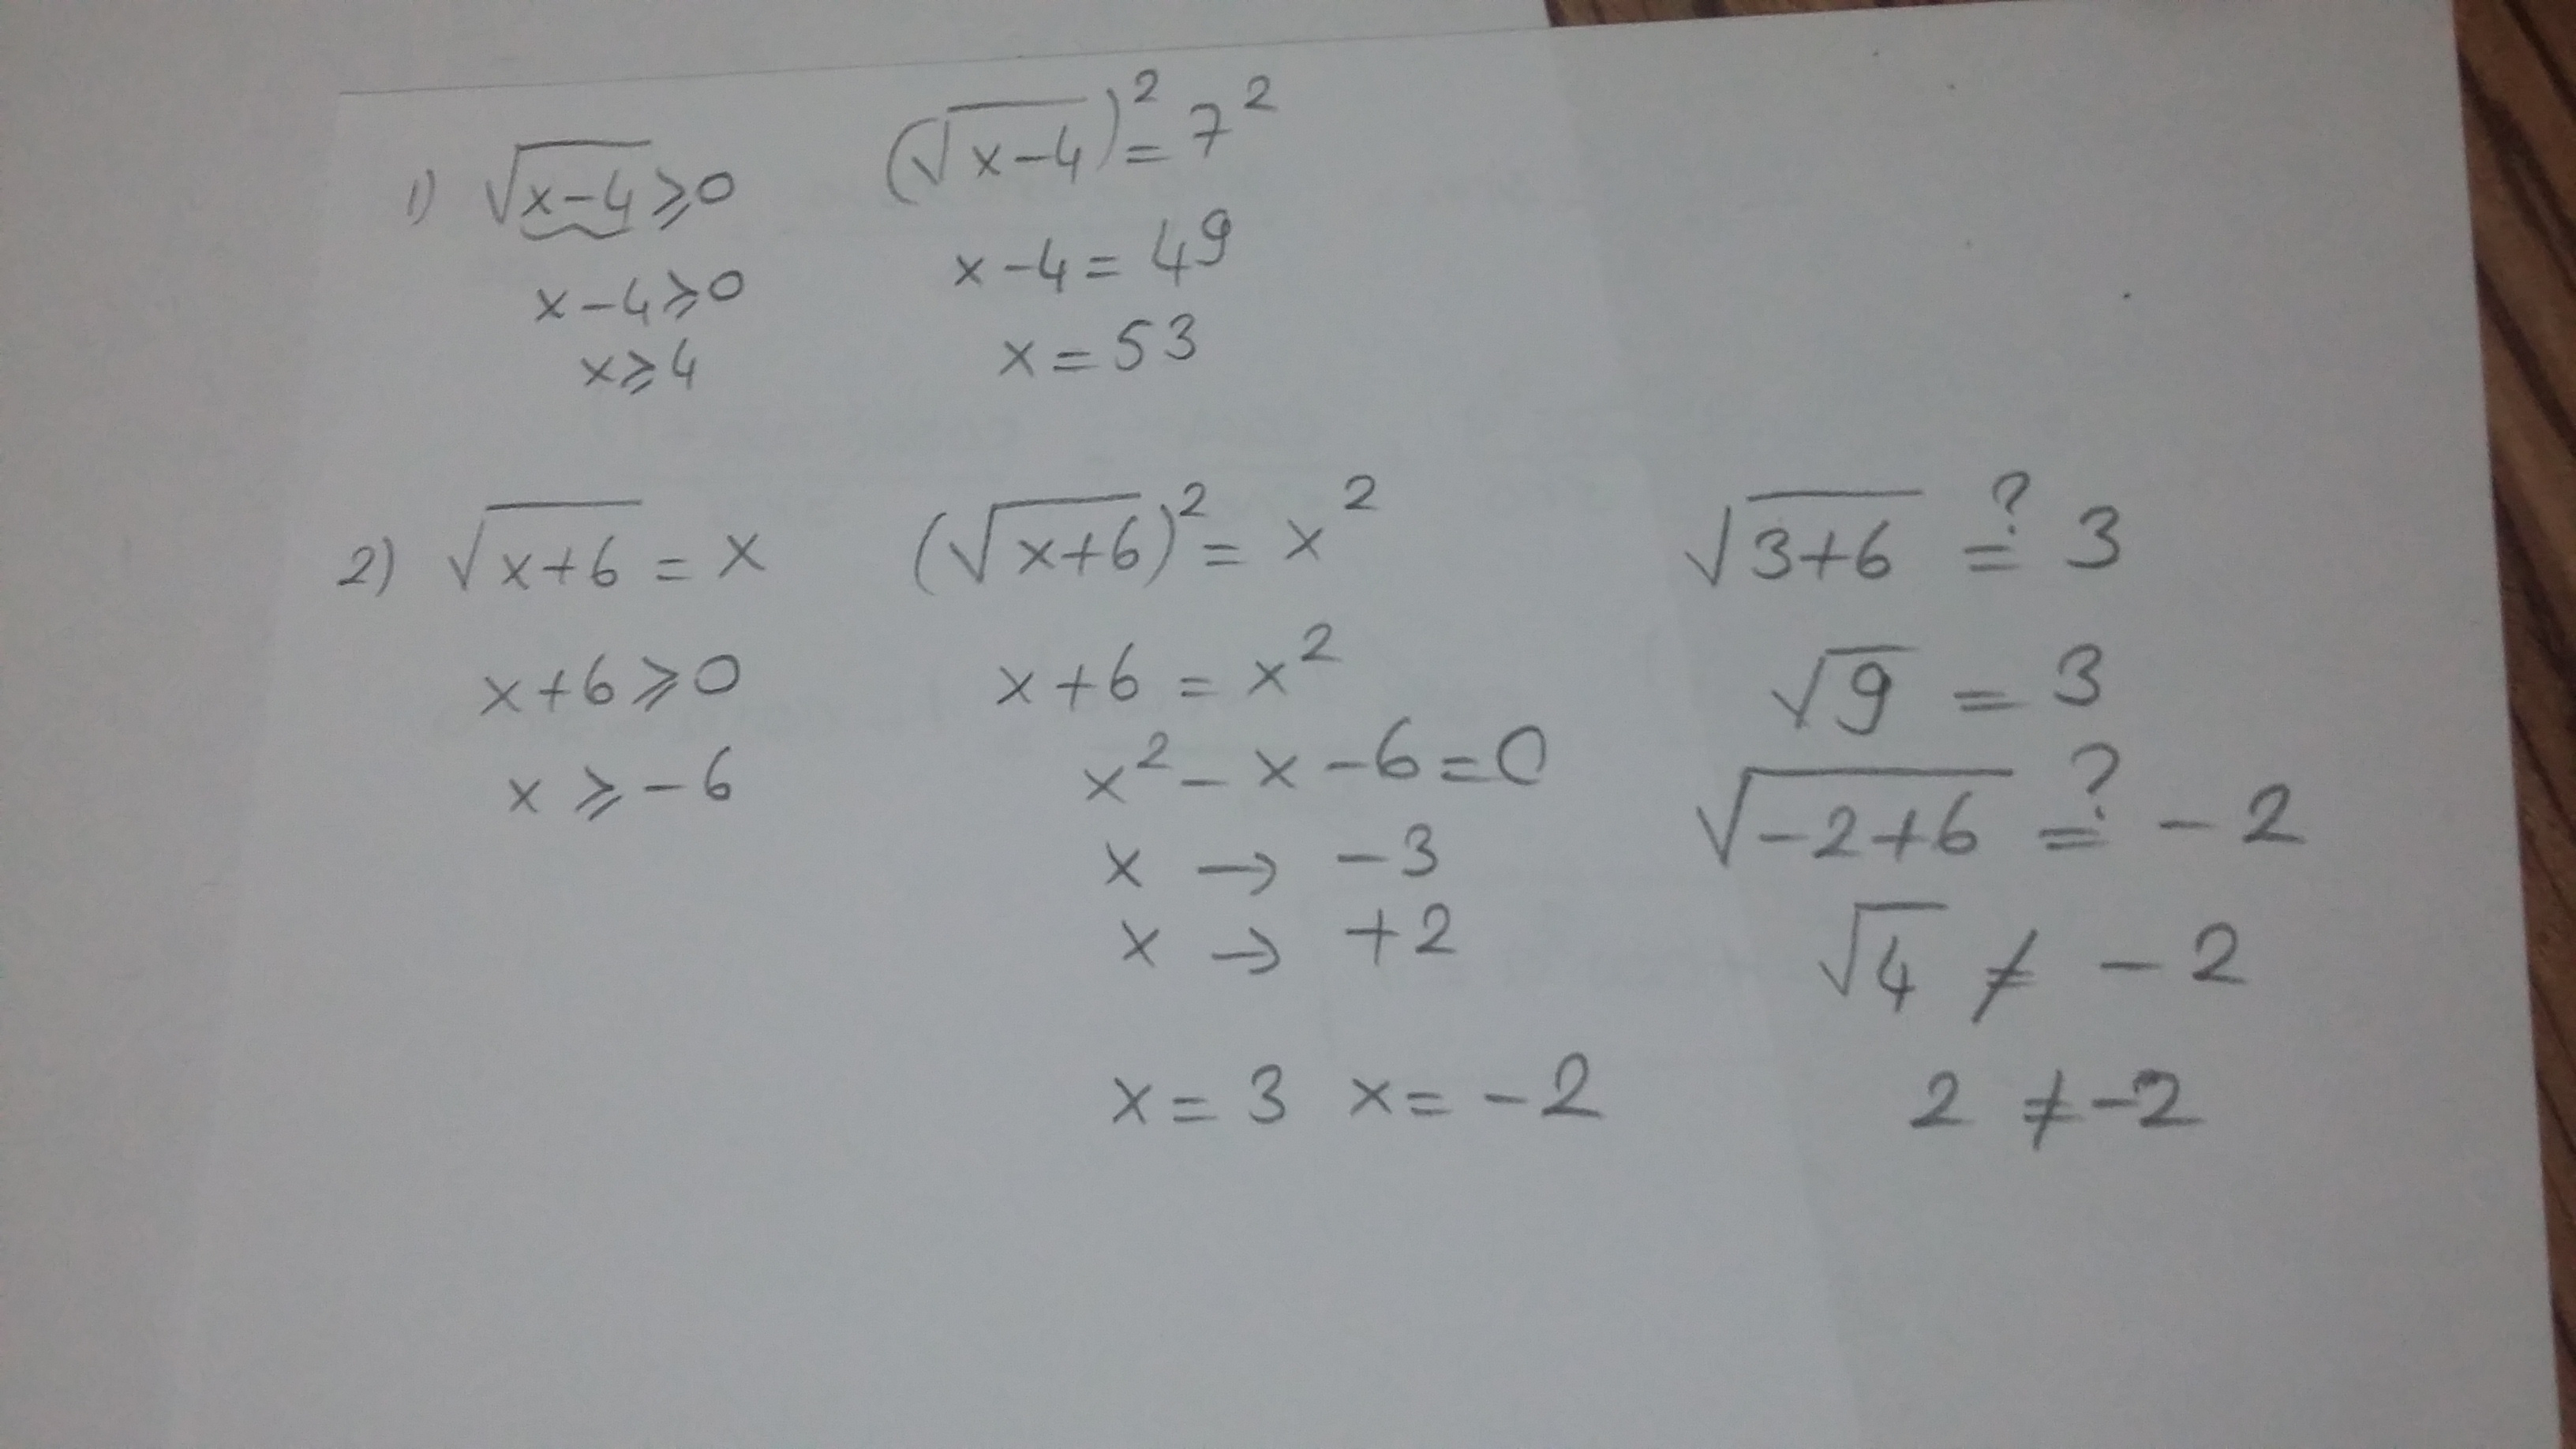 1) √(x-4) ⩾ 0
x-4 ⩾ 0
x ⩾ 4
(√(x-4))² = 7²
x-4 = 49
x = 53
2) √(x+6) = x
x+6 ⩾ 0
x ⩾ -6
(√(x+6))² = x²
x+6 = x²
x² - x - 6 = 0
x → -3
x → +2
x = 3 x = -2
√(3+6) =? 3
√9 = 3
√(-2+6) =? -2
√4 ≠ -2
2 ≠ -2